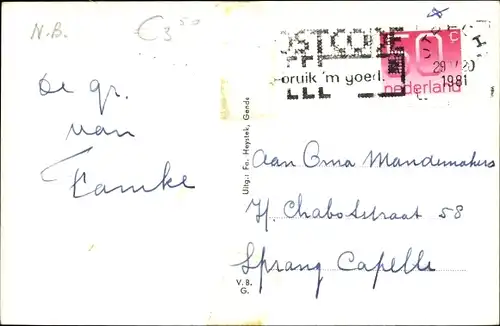 N.B.
€ 3 50
POSTCODE
bruik 'm goed.
29
1981
60c
nederland
De gr.
van
Famke
Uitg.: Fa. Heystek, Gends
V. B.
G.
Aan Oma Mandemakers
H. Chabotstraat 58
Sprang Capelle